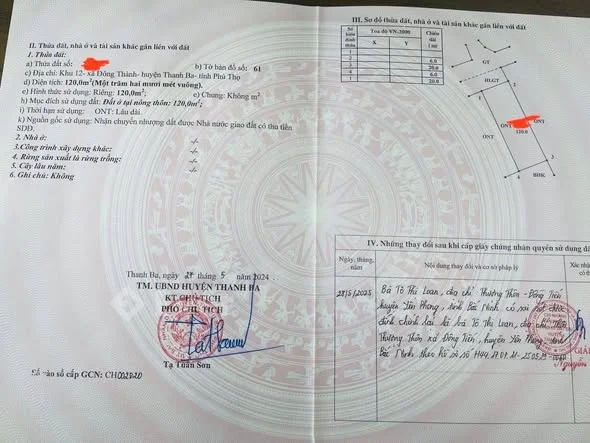 II. Thửa đất, nhà ở và tài sản khác gắn liền với đất
1. Thửa đất:
a) Thửa đất số:
b) Tờ bản đồ số: 61
c) Địa chỉ: Khu 12- xã Đông Thành- huyện Thanh Ba- tỉnh Phú Thọ
d) Diện tích: 120,0m²(Một trăm hai mươi mét vuông).
e) Hình thức sử dụng: Riêng: 120,0m²; e) Chung: Không m²
h) Mục đích sử dụng đất: Đất ở tại nông thôn: 120,0m²;
i) Thời hạn sử dụng: ONT: Lâu dài.
k) Nguồn gốc sử dụng: Nhận chuyển nhượng đất được Nhà nước giao đất có thu tiền
SDD.
2. Nhà ở: -/-
3.Công trình xây dựng khác: -/-
4. Rừng sản xuất là rừng trồng: -/-
5. Cây lâu năm: -/-
6. Ghi chú: Không
Thanh Ba, ngày 28 tháng 5 năm 2024
TM. UBND HUYỆN THANH BA
KT.CHỦ TỊCH
PHÓ CHỦ TỊCH
Tạ Tuấn Sơn
Số vào sổ cấp GCN:
III. Sơ đồ thửa đất, nhà ở và tài sản khác gắn liền với đất
Số hiệu đỉnh thửa
Toạ độ VN-2000
Chiều dài (m)
X Y
1
2 6.0
3 20.0
4 6.0
1 20.0
GT
HLGT
1
2
ONT
ONT
ONT
120.0
3
4
BHK
IV. Những thay đổi sau khi cấp giấy chứng nhận quyền sử dụng đấ
Ngày, tháng, năm
Nội dung thay đổi và cơ sở pháp lý
Xác nhậ
có th
28/5/2025
Bà Tô Thị Loan, địa chỉ Thượng Thôn - Đông Tiến
huyện Yên Phong, tỉnh Bắc Ninh có sai sót được
đính chính lại là bà Tô Thị Loan, địa chỉ: Thôn
Thượng Thôn xã Đông Tiến, huyện Yên Phong, tỉnh
Bắc Ninh theo hồ sơ số
GIÁ
Nguyễn